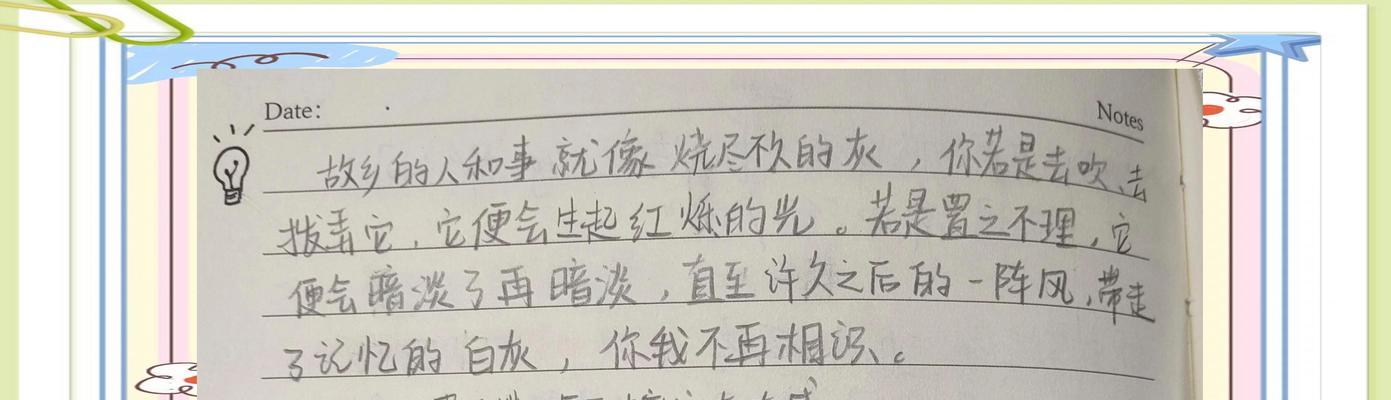 Date:
Notes
故乡的人和事就像烧尽的灰，你若是去吹、去
拨弄它，它便会生起红烁的光。若是置之不理，它
便会暗淡了再暗淡，直至许久之后的一阵风，带走
了记忆的白灰，你我不再相识。